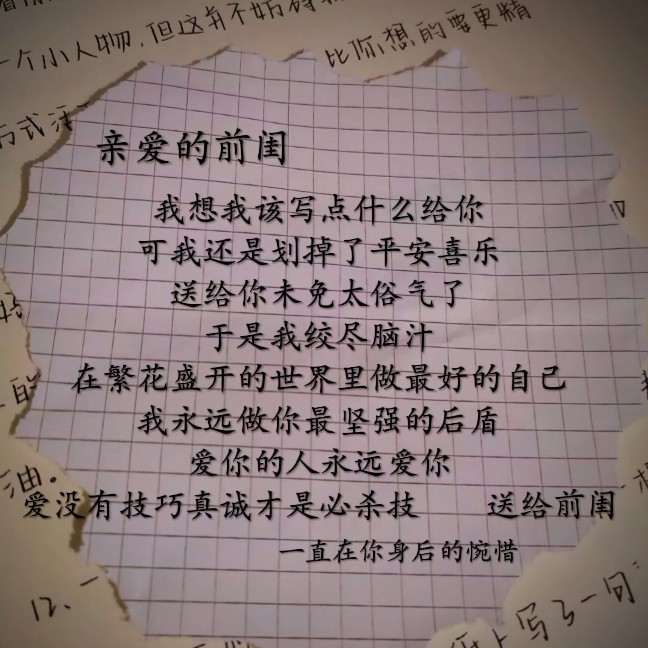 一个小人物,但这并不妨碍
比你想的要更精
方式活
亲爱的前闺
我想我该写点什么给你
可我还是划掉了平安喜乐
送给你未免太俗气了
于是我绞尽脑汁
在繁花盛开的世界里做最好的自己
我永远做你最坚强的后盾
爱你的人永远爱你
油.
爱没有技巧真诚才是必杀技 送给前闺
一直在你身后的惋惜
12、一
写了一句